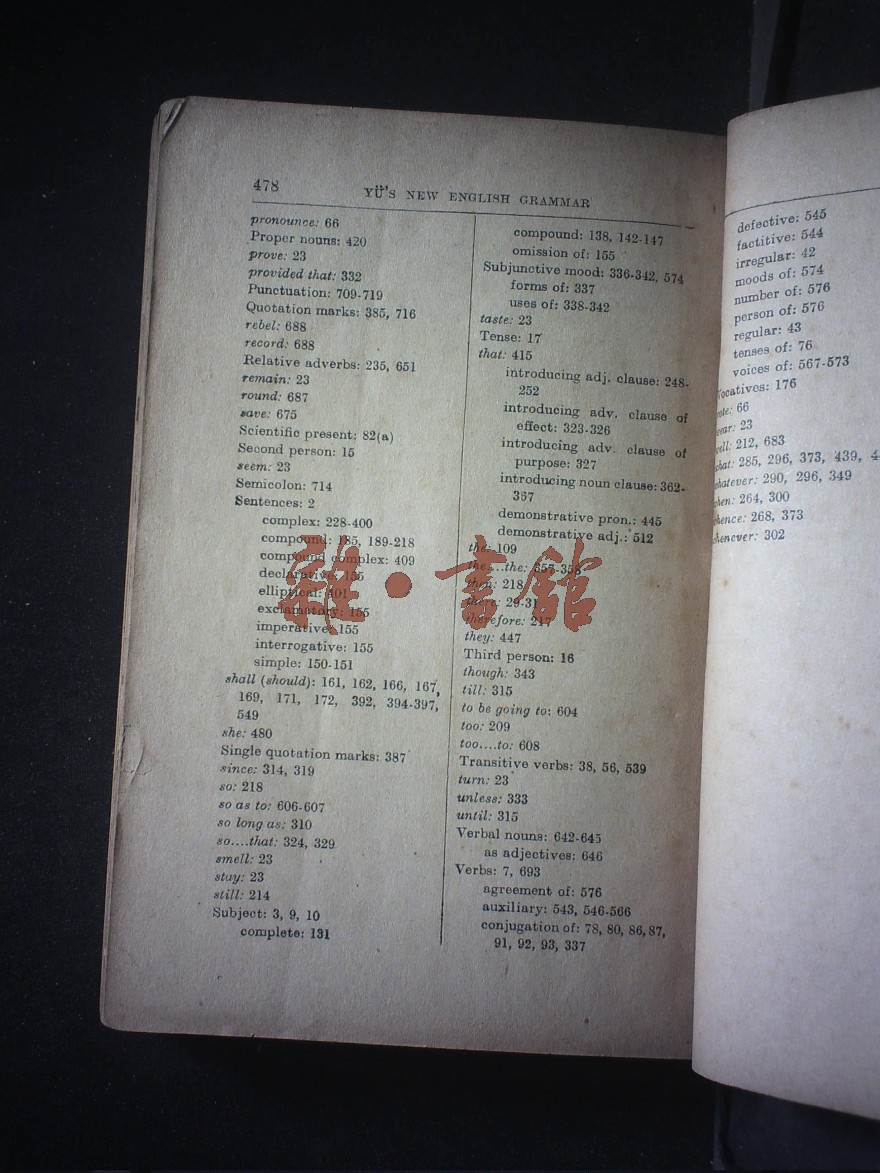 478
YÜ'S NEW ENGLISH GRAMMAR
pronounce: 66
Proper nouns: 420
prove: 23
provided that: 332
Punctuation: 709-719
Quotation marks: 385, 716
rebel: 688
record: 688
Relative adverbs: 235, 651
remain: 23
round: 687
save: 675
Scientific present: 82(a)
Second person: 15
seem: 23
Semicolon: 714
Sentences: 2
complex: 228-400
compound: 185, 189-218
compound complex: 409
declarative: 155
elliptical: 401
exclamatory: 155
imperative: 155
interrogative: 155
simple: 150-151
shall (should): 161, 162, 166, 167,
169, 171, 172, 392, 394-397,
549
she: 480
Single quotation marks: 387
since: 314, 319
so: 218
so as to: 606-607
so long as: 310
so....that: 324, 329
smell: 23
stay: 23
still: 214
Subject: 3, 9, 10
complete: 131
compound: 138, 142-147
omission of: 155
Subjunctive mood: 336-342, 574
forms of: 337
uses of: 338-342
taste: 23
Tense: 17
that: 415
introducing adj. clause: 248-
252
introducing adv. clause of
effect: 323-326
introducing adv. clause of
purpose: 327
introducing noun clause: 362-
367
demonstrative pron.: 445
demonstrative adj.: 512
the: 109
the...the: 357-358
then: 218
there: 29-31
therefore: 217
they: 447
Third person: 16
though: 343
till: 315
to be going to: 604
too: 209
too....to: 608
Transitive verbs: 38, 56, 539
turn: 23
unless: 333
until: 315
Verbal nouns: 642-645
as adjectives: 646
Verbs: 7, 693
agreement of: 576
auxiliary: 543, 546-566
conjugation of: 78, 80, 86, 87,
91, 92, 93, 337
雜·書館
defective: 545
factitive: 544
irregular: 42
moods of: 574
number of: 576
person of: 576
regular: 43
tenses of: 76
voices of: 567-573
Vocatives: 176
66
23
212, 683
285, 296, 373, 439,
whatever: 290, 296, 349
when: 264, 300
whence: 268, 373
whenever: 302